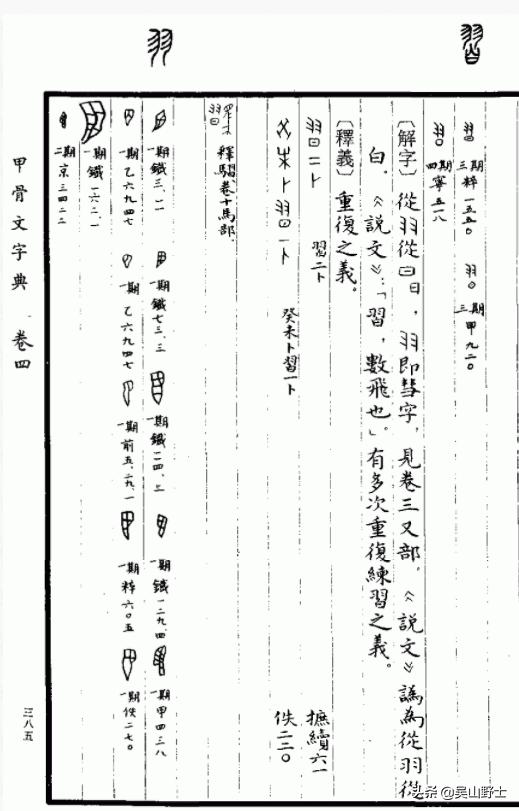 三期粹一五五〇 三期甲九二〇
四期寧五一八
〔解字〕從羽從日日,羽即彗字,見卷三又部.《説文》譌為從羽從
白.《説文》:「習,數飛也。」有多次重復練習之義。
〔釋義〕重復之義。
習二卜 摭續六一
癸未卜習一卜 佚二二〇
釋騽卷十馬部.
一期鐵三.二 一期鐵七三.三 一期鐵二四.三 一期鐵一二九.四 一期甲四三八
一期乙六九四七 一期乙六九四七 一期前五.二九.一 一期粹六〇五 一期佚二七〇
一期鐵一六二.一
二期京三四二二
甲骨文字典 卷四
三八五
头条 @吴山野士